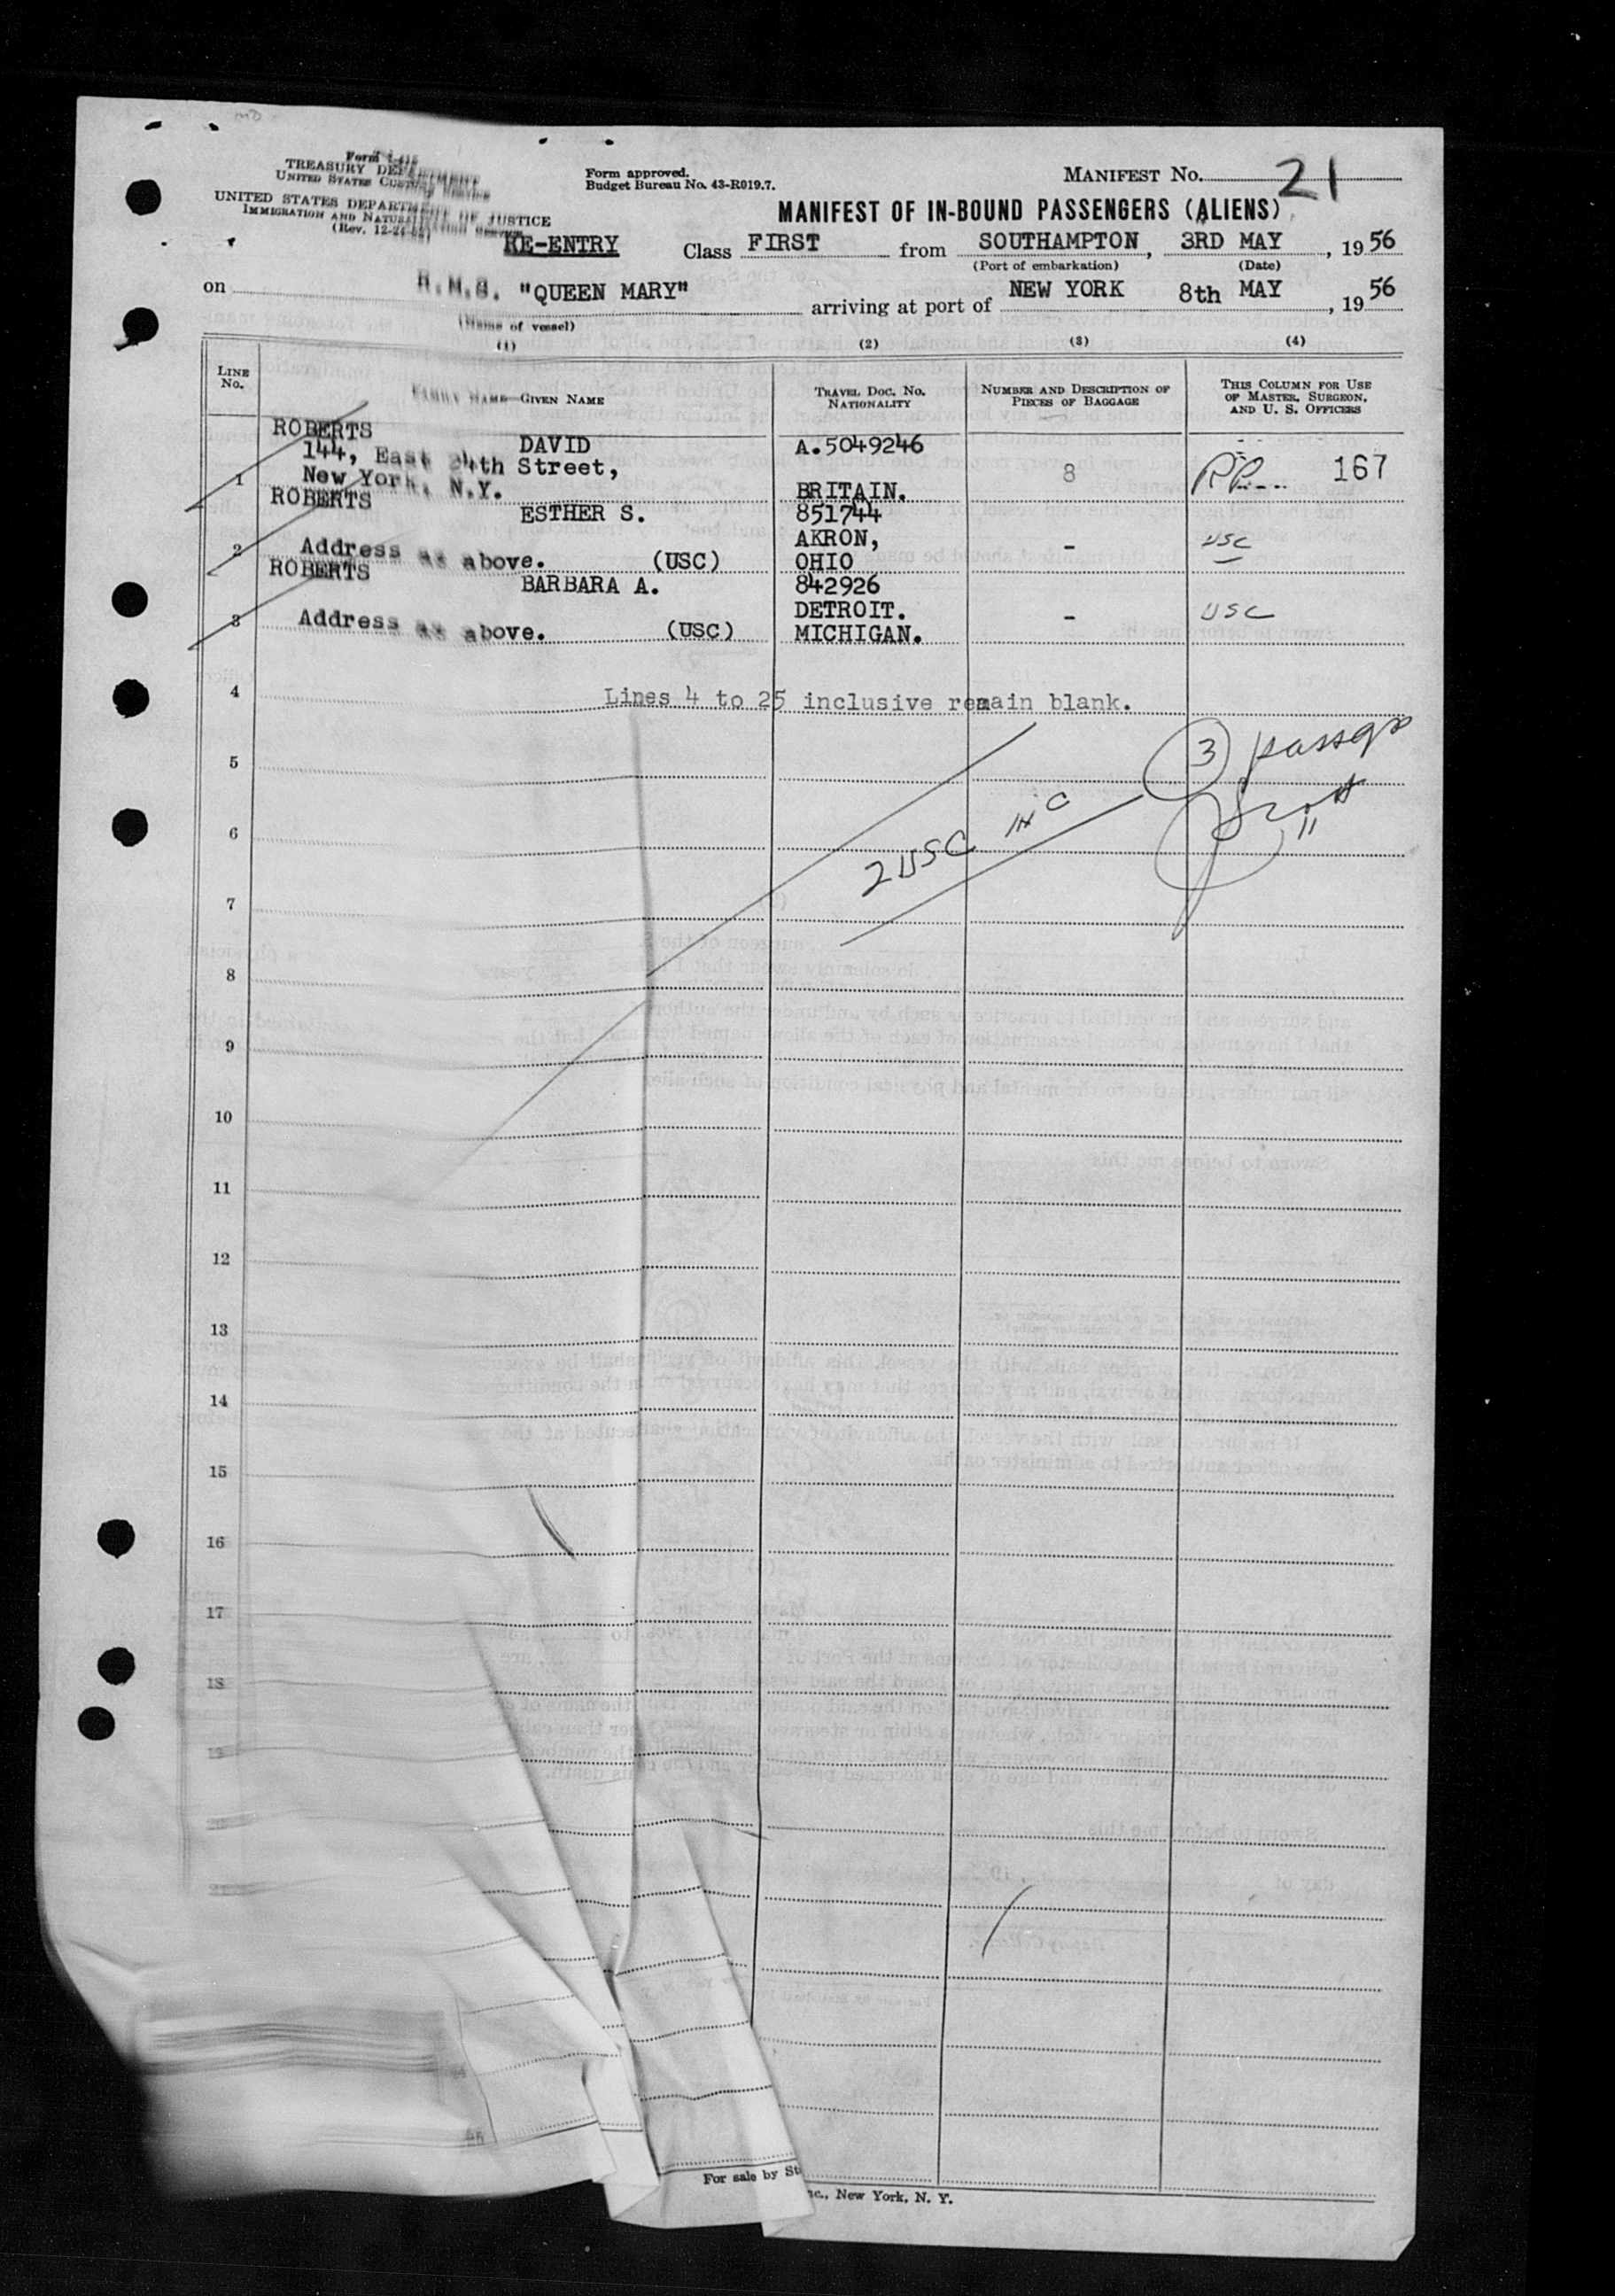 Form I-415
TREASURY DEPARTMENT
UNITED STATES CUSTOMS SERVICE
UNITED STATES DEPARTMENT OF JUSTICE
IMMIGRATION AND NATURALIZATION SERVICE
(Rev. 12-24-52)
Form approved.
Budget Bureau No. 43-R019.7.
MANIFEST No. 21
MANIFEST OF IN-BOUND PASSENGERS (ALIENS)
RE-ENTRY Class FIRST from SOUTHAMPTON, 3RD MAY, 1956
(Port of embarkation) (Date)
on R.M.S. "QUEEN MARY" arriving at port of NEW YORK 8th MAY, 1956
(Name of vessel)
(1) (2) (3) (4)
LINE No. FAMILY NAME—GIVEN NAME TRAVEL DOC. NO. NATIONALITY NUMBER AND DESCRIPTION OF PIECES OF BAGGAGE THIS COLUMN FOR USE OF MASTER, SURGEON, AND U. S. OFFICERS
ROBERTS
DAVID A.5049246
144, East 24th Street,
1 New York, N.Y. BRITAIN. 8 167
ROBERTS
ESTHER S. 851744
AKRON,
2 Address as above. (USC) OHIO - USC
ROBERTS
BARBARA A. 842926
DETROIT.
3 Address as above. (USC) MICHIGAN. - USC
4 Lines 4 to 25 inclusive remain blank.
3 passgs
5
2 USC
6
7
8
9
10
11
12
13
14
15
16
17
18
19
20
21
For sale by St
nc., New York, N. Y.